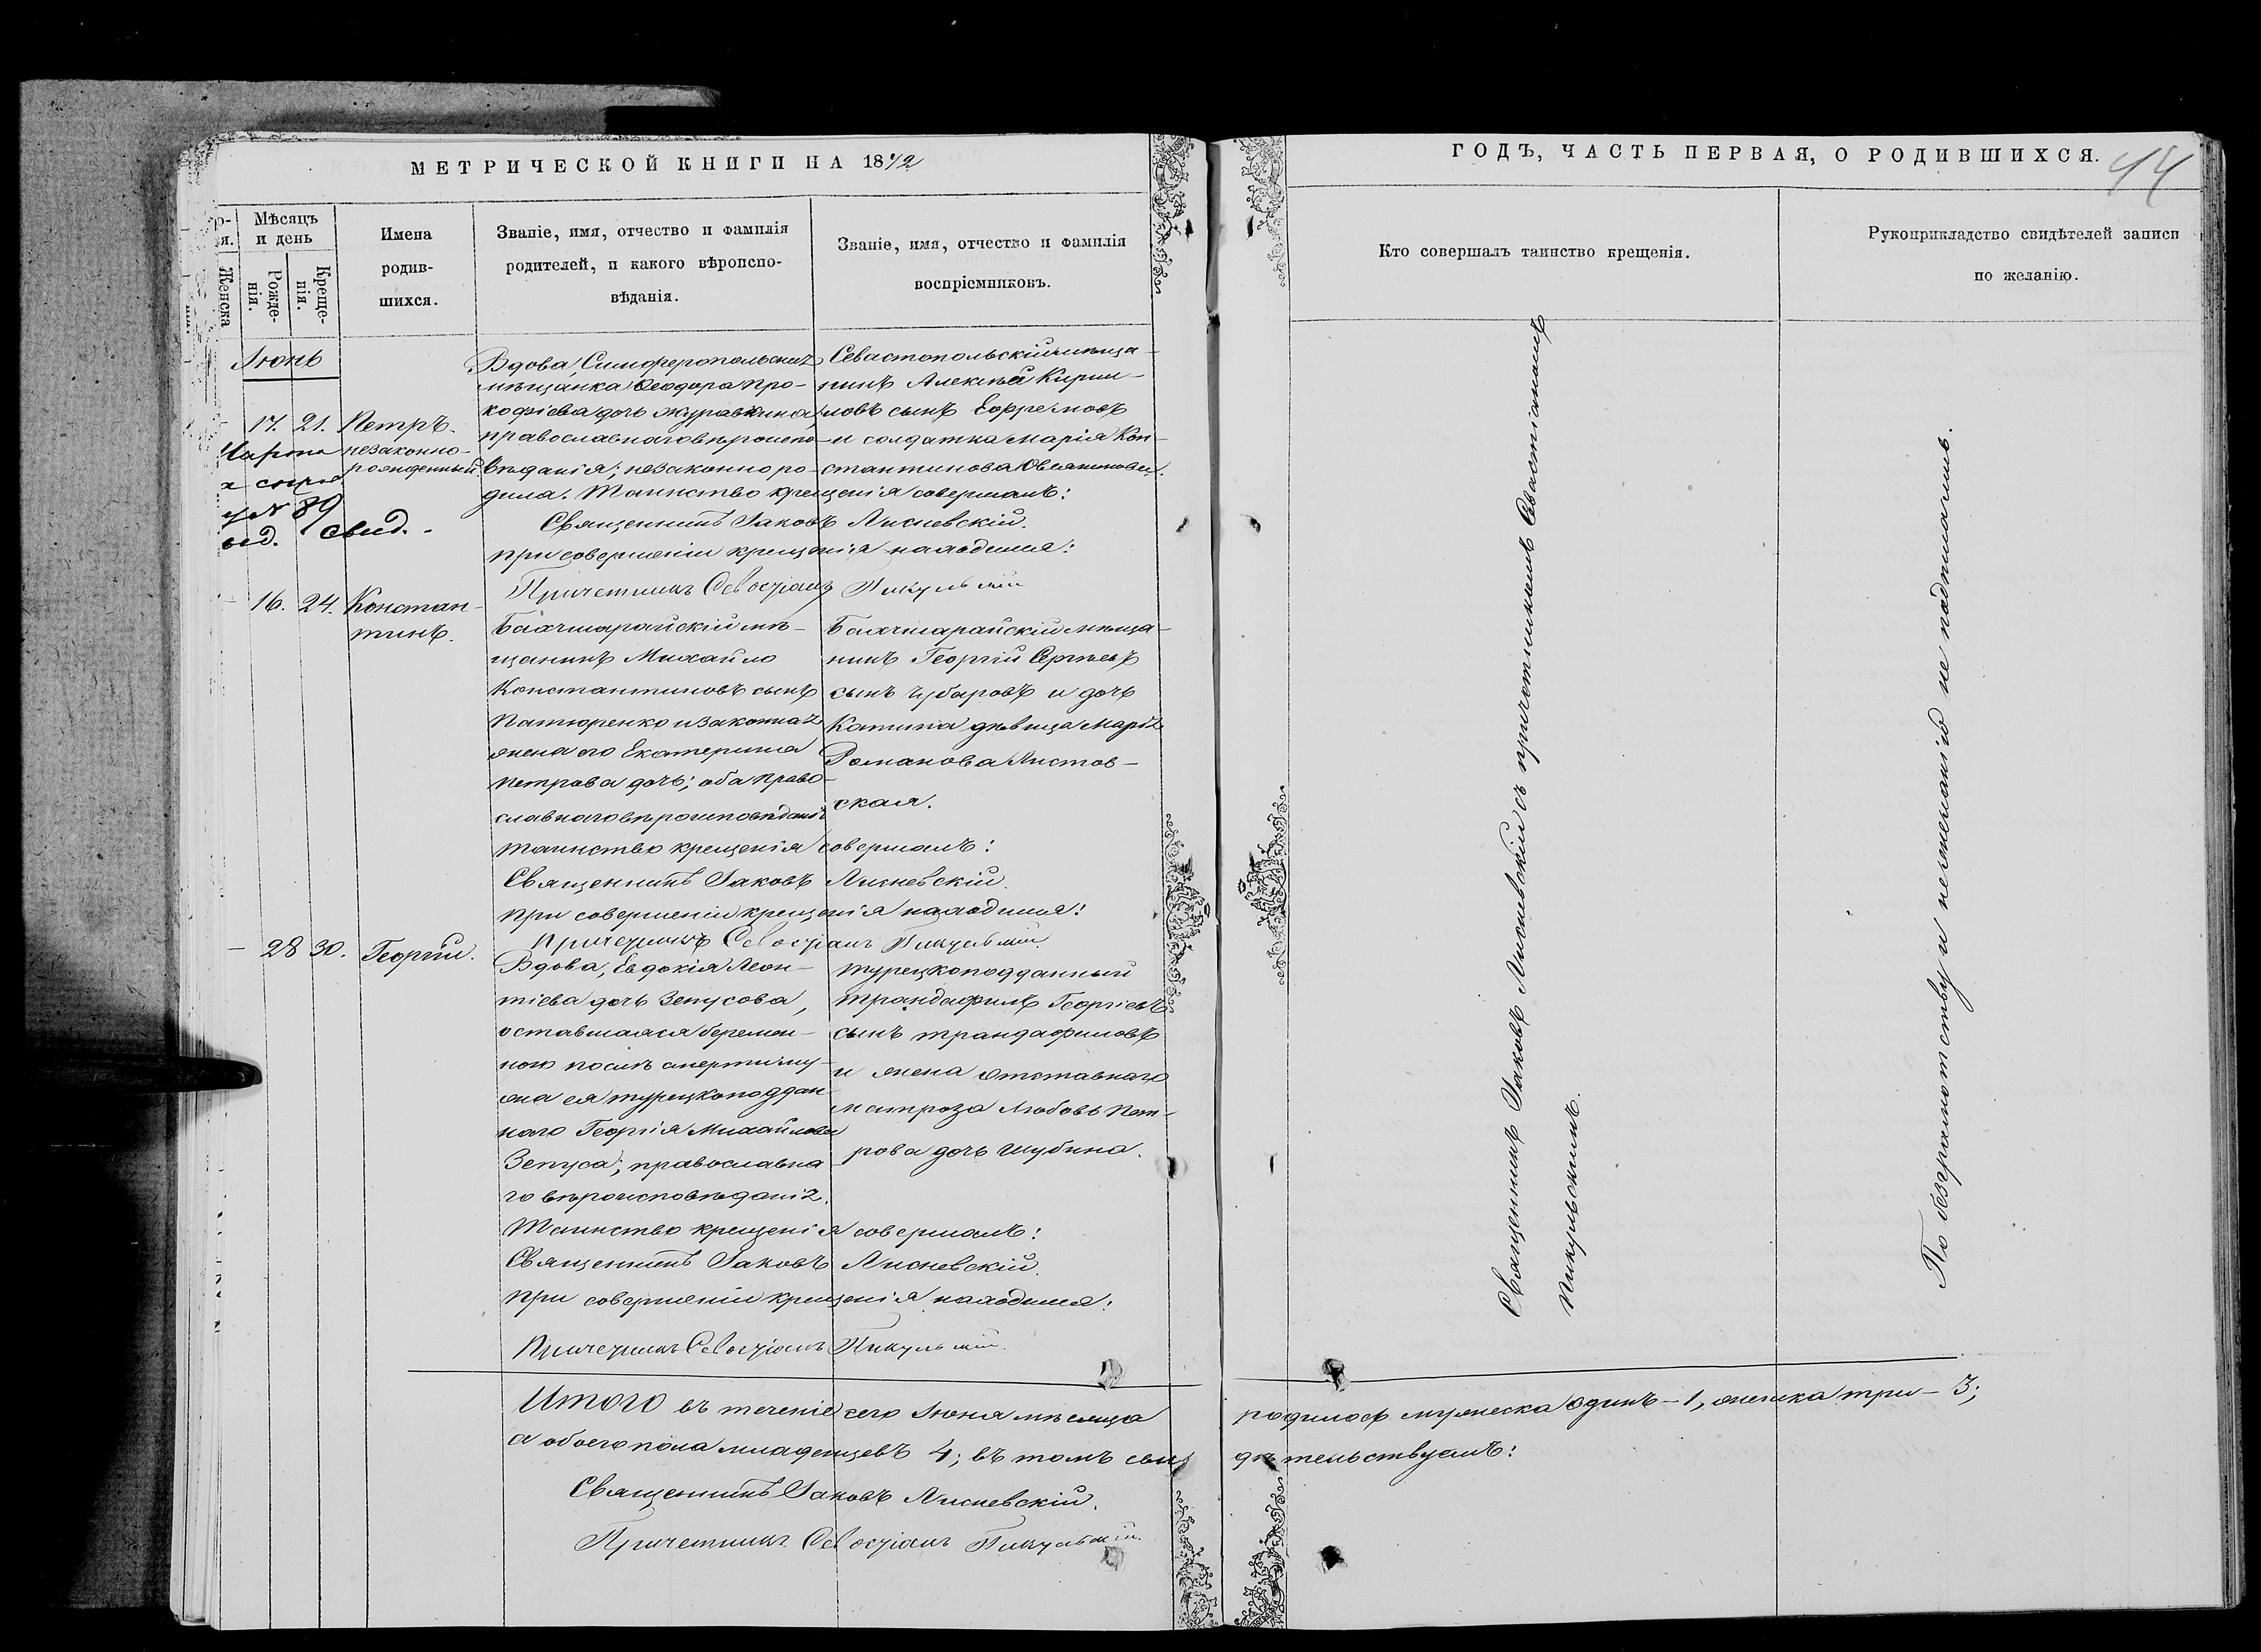 МЕТРИЧЕСКОЙ КНИГИ НА 1872
Мѣсяцъ и день
Женска
Рожде-нія.
Креще-нія.
Имена родив-шихся.
Званіе, имя, отчество и фамилія родителей, и какого вѣроиспо-вѣданія.
Званіе, имя, отчество и фамилія воспріемниковъ.
Іюнь
17. 21. Петръ.
незаконно-
рожденный.
№ 89
свид.
Вдова, Симферопольская
мѣщанка Ѳеодора Про-
кофіева дочь Журавкина,
православнаго вѣроиспо-
вѣданія; незаконно ро-
дила. Таинство крещенія совершалъ:
Священникъ Іаковъ Лисневскій.
при совершеніи крещенія находился:
Причетникъ Севастіанъ Пикульскій
Севастопольскій мѣща-
нинъ Алексѣй Кирил-
ловъ сынъ Ефремовъ
и солдатка Марія Кон-
стантинова
16. 24. Констан-
тинъ.
Бахчисарайскій мѣ-
щанинъ Михайло
Константиновъ сынъ
Патюренко и законная
жена его Екатерина
Петрова дочь; оба право-
славнаго вѣроисповѣданія
таинство крещенія совершалъ:
Священникъ Іаковъ Лисневскій.
при совершеніи крещенія находился:
Причетникъ Севастіанъ Пикульскій.
Бахчисарайскій мѣща-
нинъ Георгій Сергѣевъ
сынъ Чубаровъ и дочь
Капитана дѣвица Марія
Романова Листов-
ская.
28 30. Георгій.
Вдова, Евдокія Леон-
тіева дочь Зепусова,
оставшаяся беремен-
ною послѣ смерти му-
жа ея турецкоподдан-
наго Георгія Михайлова
Зепуса; православна
го вѣроисповѣданія.
Таинство крещенія совершалъ:
Священникъ Іаковъ Лисневскій.
при совершеніи крещенія находился:
Причетникъ Севастіанъ Пикульскій.
турецкоподданный
Трандафилъ Георгіевъ
сынъ Трандафиловъ
и жена отставнаго
матроза Любовь Пет-
рова дочь Шубина.
Итого въ теченіе сего Іюня мѣсяца
а обоего пола младенцевъ 4; въ томъ сви
Священникъ Іаковъ Лисневскій.
Причетникъ Севастіанъ Пикульскій.
ГОДЪ, ЧАСТЬ ПЕРВАЯ, О РОДИВШИХСЯ.
44
Кто совершалъ таинство крещенія.
Рукоприкладство свидѣтелей записи
по желанію.
Священникъ Іаковъ Лисневскій съ причетникомъ Севастіаномъ
Пикульскимъ.
По безграмотству и нежеланію не подписались.
родилось мужеска одинъ – 1, женска три – 3;
дѣтельствуемъ: